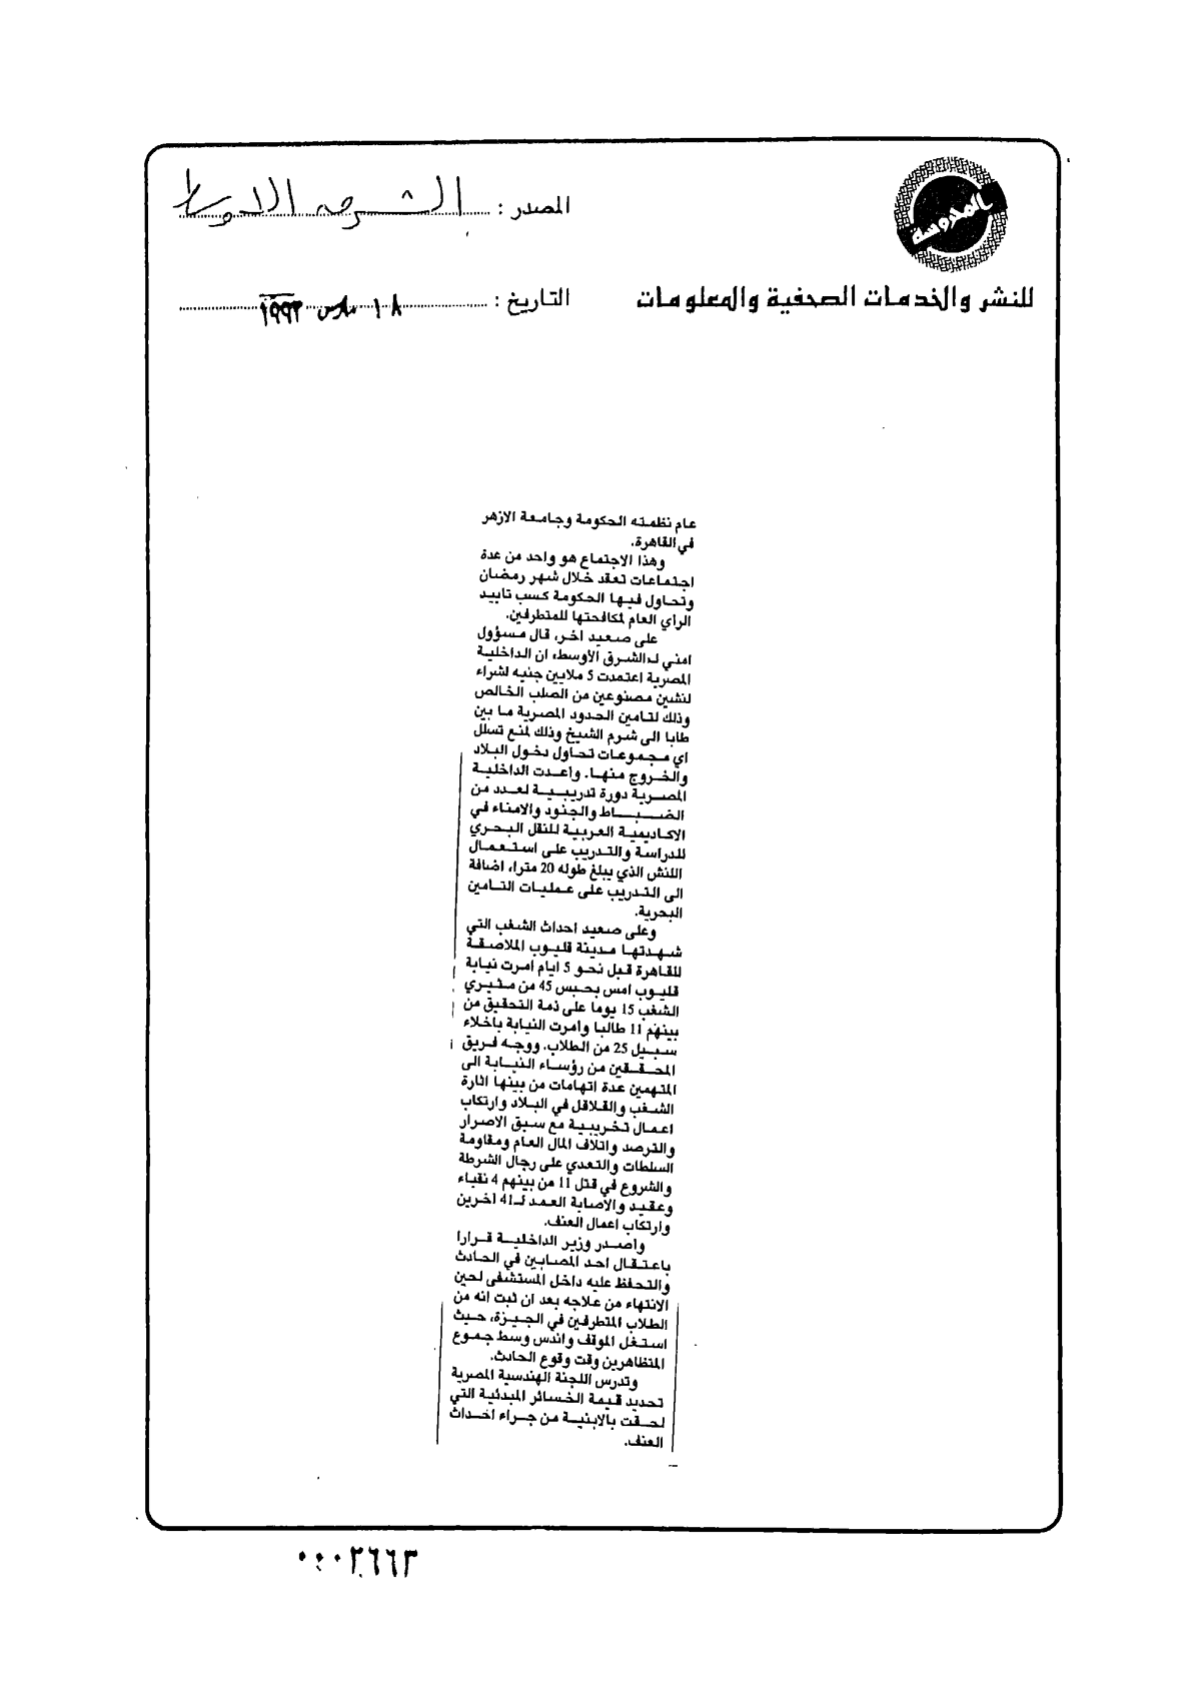 المصدر : الشرق الاوسط
المدوسة
للنشر والخدمات الصحفية والمعلومات
التاريخ : ١٨ مارس ١٩٩٣
عام نظمته الحكومة وجامعة الازهر
في القاهرة.
وهذا الاجتماع هو واحد من عدة
اجتماعات تعقد خلال شهر رمضان
وتحاول فيها الحكومة كسب تاييد
الراي العام لمكافحتها للمتطرفين.
على صعيد اخر، قال مسؤول
امني لـ«الشرق الأوسط» ان الداخلية
المصرية اعتمدت 5 ملايين جنيه لشراء
لنشين مصنوعين من الصلب الخالص
وذلك لتامين الحدود المصرية ما بين
طابا الى شرم الشيخ وذلك لمنع تسلل
اي مجموعات تحاول دخول البلاد
والخروج منها. واعدت الداخلية
المصرية دورة تدريبية لعدد من
الضباط والجنود والامناء في
الاكاديمية العربية للنقل البحري
للدراسة والتدريب على استعمال
اللنش الذي يبلغ طوله 20 مترا، اضافة
الى التدريب على عمليات التامين
البحرية.
وعلى صعيد احداث الشغب التي
شهدتها مدينة قليوب الملاصقة
للقاهرة قبل نحو 5 ايام امرت نيابة
قليوب امس بحبس 45 من مثيري
الشغب 15 يوما على ذمة التحقيق من
بينهم 11 طالبا وامرت النيابة باخلاء
سبيل 25 من الطلاب. ووجه فريق
المحققين من رؤساء النيابة الى
المتهمين عدة اتهامات من بينها اثارة
الشغب والقلاقل في البلاد وارتكاب
اعمال تخريبية مع سبق الاصرار
والترصد واتلاف المال العام ومقاومة
السلطات والتعدي على رجال الشرطة
والشروع في قتل 11 من بينهم 4 نقباء
وعقيد والاصابة العمد لـ41 اخرين
وارتكاب اعمال العنف.
واصدر وزير الداخلية قرارا
باعتقال احد المصابين في الحادث
والتحفظ عليه داخل المستشفى لحين
الانتهاء من علاجه بعد ان ثبت انه من
الطلاب المتطرفين في الجيزة، حيث
استغل الموقف واندس وسط جموع
المتظاهرين وقت وقوع الحادث.
وتدرس اللجنة الهندسية المصرية
تحديد قيمة الخسائر المبدئية التي
لحقت بالابنية من جراء احداث
العنف.
٠٠٠٢٦٦٣